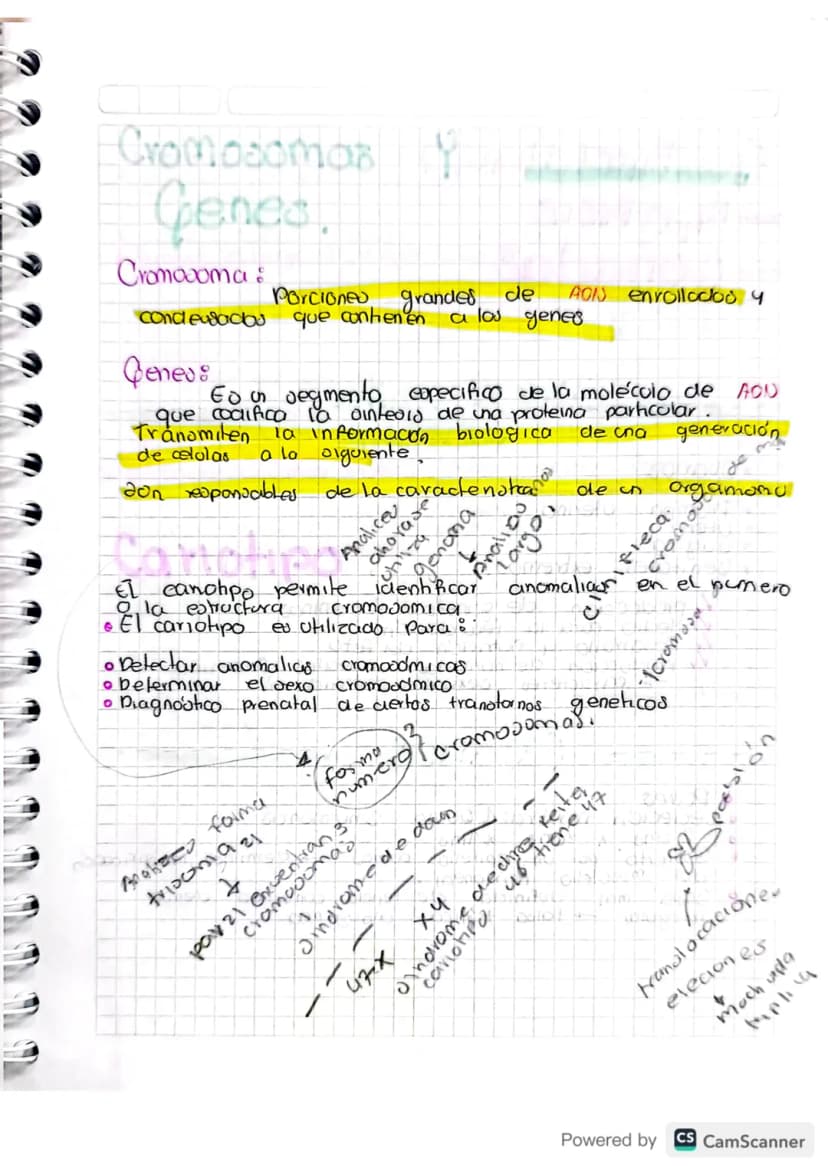 Cromosomas Y
Genes.
Cromosoma:
Porciones grandes de ADN enrollados y
condensados que contienen a los genes
Genes:
Es un segmento especifico de la molécula de ADN
que codifica la sintesis de una proteina particular.
Transmiten la informacion biologica de una generación
de celulas a la siguiente.
Son responsables de la caracteristicas de un organismo
Cariotipo
Analices
ahora se
utiliza
genoma
Analisis
largo.
El cariotipo permite identificar anomalias en el numero
o la estructura cromosomica
• El cariotipo es utilizado para:
• Detectar anomalias cromosómicas
• Determinar el sexo cromosómico
• Diagnóstico prenatal de ciertos transtornos geneticos
forma
numero
cromosomas.
forma
trisomia 21
par 21 encuentran 3
cromosomas
sindrome de down
47 X X Y
sindrome de
cariotipo 46 tiene 47
posición
translocaciones